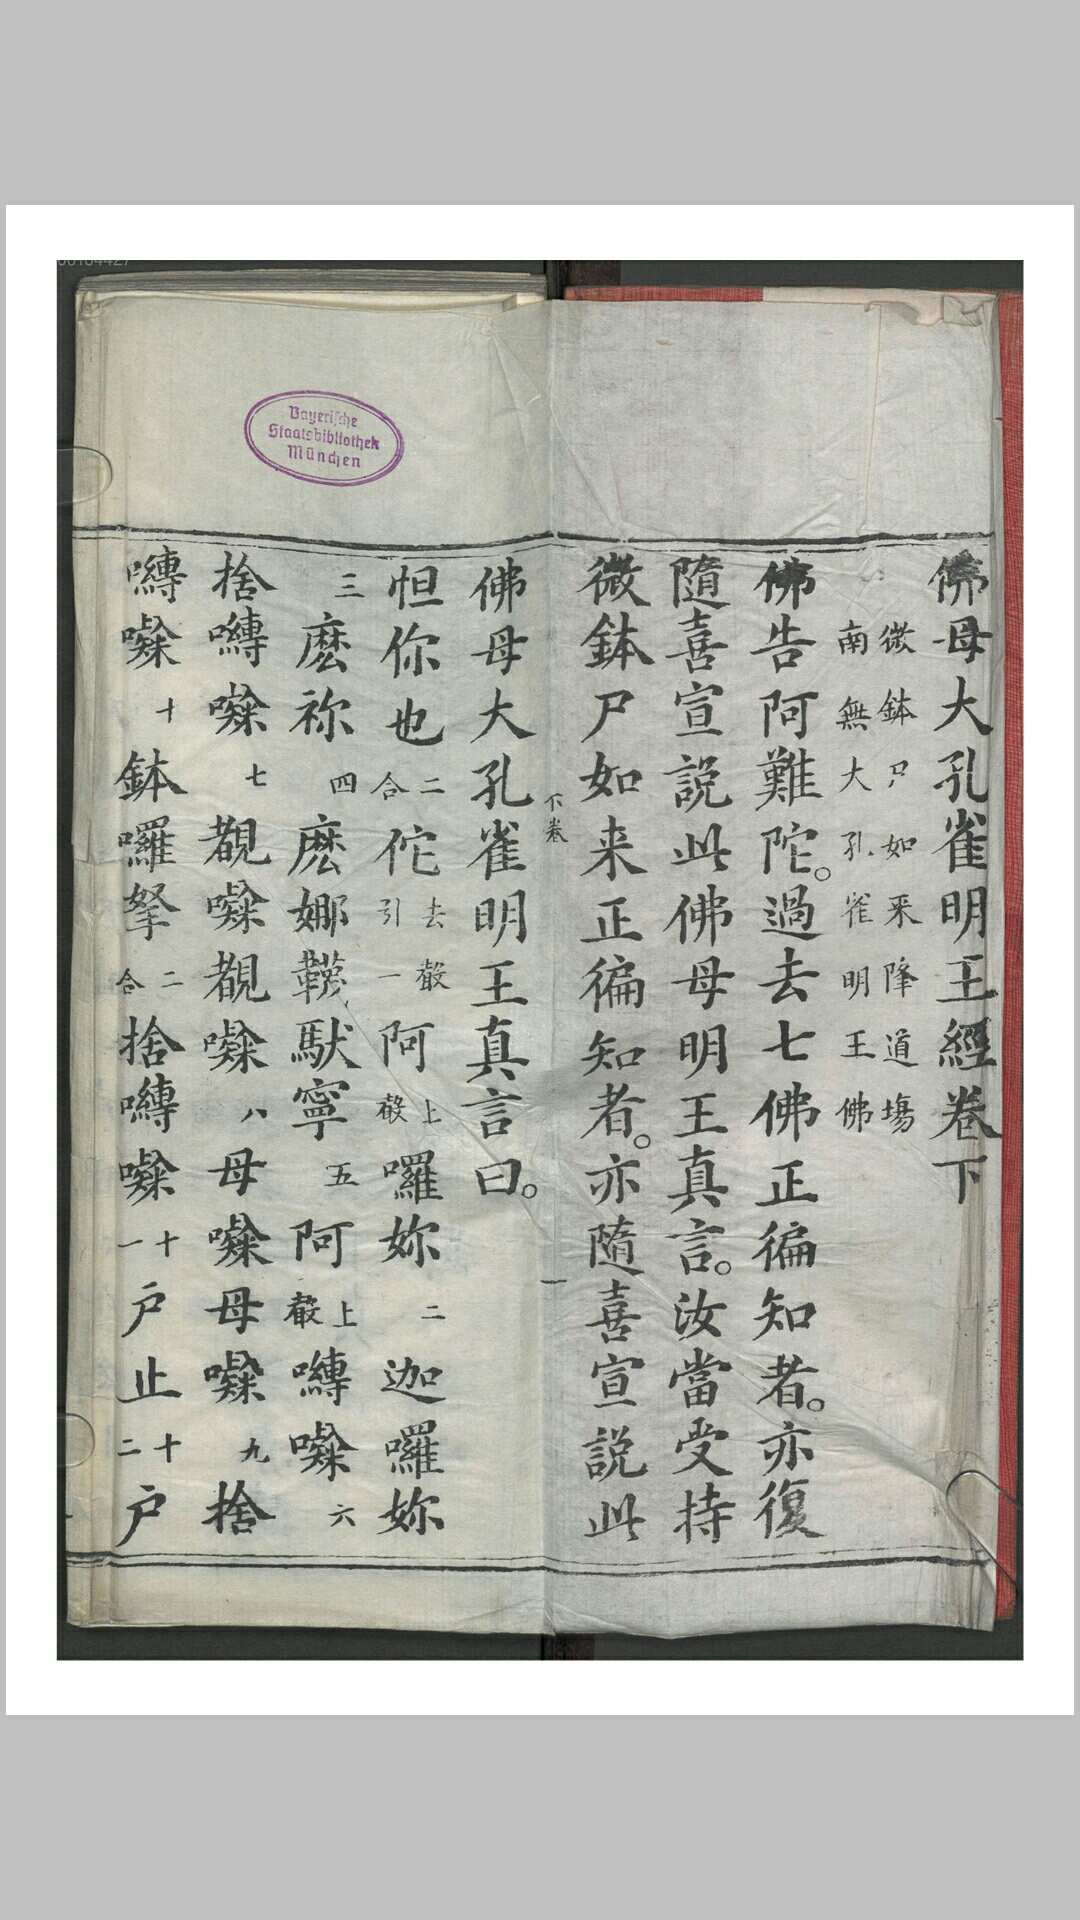 佛母大孔雀明王經卷下
微鉢尸如来降道場
南無大孔雀明王佛
佛告阿難陀。過去七佛正徧知者。亦復
隨喜宣說此佛母明王真言。汝當受持
微鉢尸如来正徧知者。亦隨喜宣說此
下卷
一
佛母大孔雀明王真言曰。
怛你也二合佗去聲引一阿上聲囉妳二迦囉妳
三麽祢四麽娜韈馱寧五阿上聲嚩㗚六
捨嚩㗚七覩㗚覩㗚八母㗚母㗚九捨
嚩㗚十鉢囉拏二合捨嚩㗚十一户止十二户
Bayerische
Staatsbibliothek
München